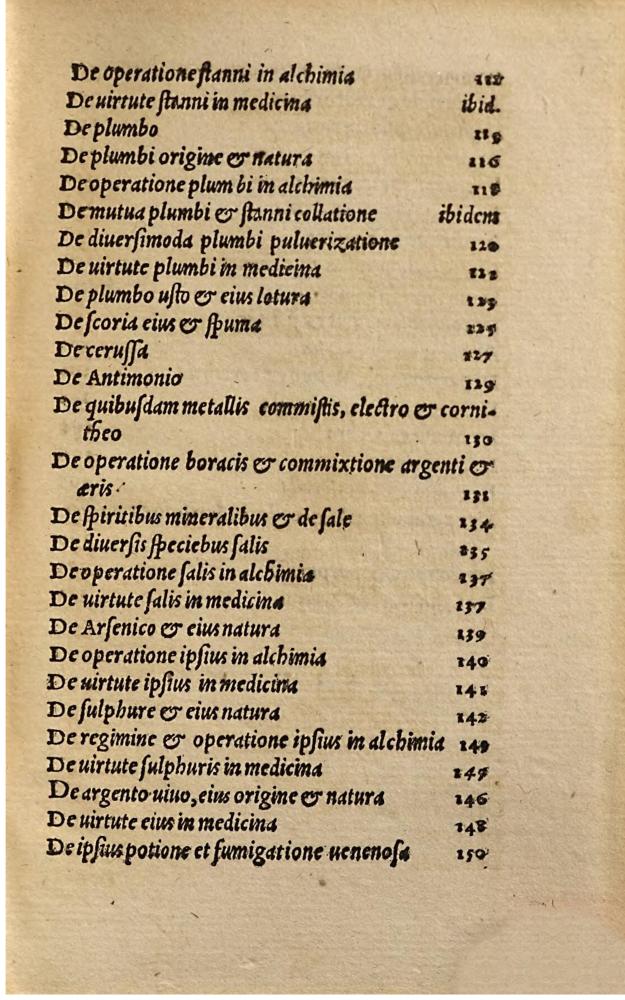 De operatione ſtanni in alchimia 112
De uirtute ſtanni in medicina ibid.
De plumbo 115
De plumbi origine & natura 116
De operatione plum bi in alchimia 118
De mutua plumbi & ſtanni collatione ibidem
De diuerſimoda plumbi puluerizatione 120
De uirtute plumbi in medicina
De plumbo uſto & eius lotura
De ſcoria eius & ſpuma 125
De ceruſſa 127
De Antimonio 129
De quibuſdam metallis commiſtis, electro & corni-
theo 130
De operatione boracis & commixtione argenti &
æris 131
De ſpiritibus mineralibus & de ſale 134
De diuerſis ſpeciebus ſalis 135
De operatione ſalis in alchimia 137
De uirtute ſalis in medicina 137
De Arſenico & eius natura 139
De operatione ipſius in alchimia 140
De uirtute ipſius in medicina 141
De ſulphure & eius natura 142
De regimine & operatione ipſius in alchimia
De uirtute ſulphuris in medicina 145
De argento uiuo, eius origine & natura 146
De uirtute eius in medicina 148
De ipſius potione et fumigatione uenenoſa 150